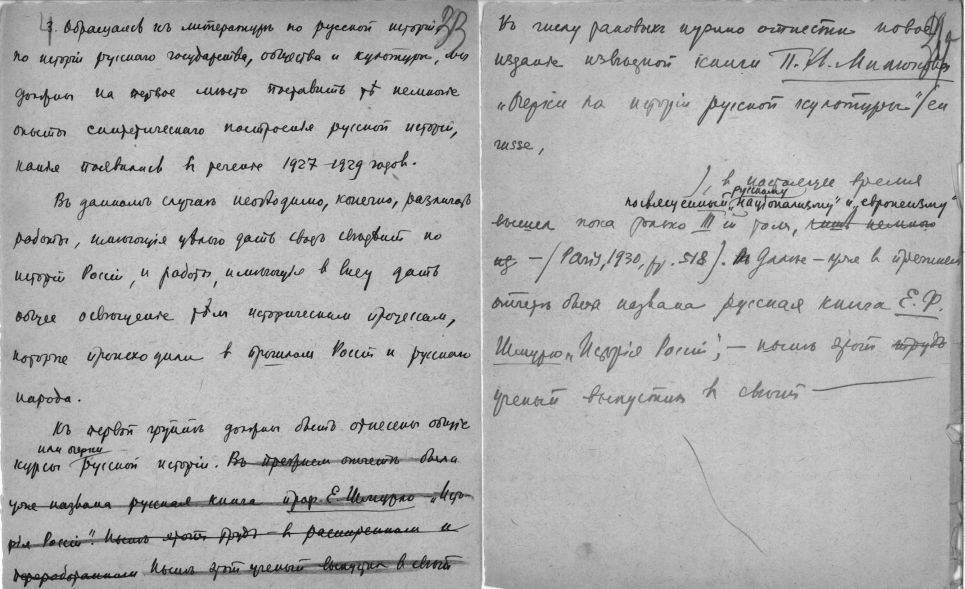 3. Обращаясь къ литературѣ по русской исторіи, 33
по исторіи русскаго государства, общества и культуры, мы
должны на первое мѣсто поставить тѣ немногіе
опыты синтетическаго построенія русской исторіи,
какіе появились в теченіе 1927-1929 годов.
Въ данномъ случаѣ необходимо, конечно, различать
работы, имѣющія цѣлью дать сводъ свѣдѣній по
исторіи Россіи, и работы, имѣющія в виду дать
общее освѣщеніе тѣм историческим процессам,
которые происходили в прошлом Россіи и русскаго
народа.
Къ первой группѣ должны быть отнесены общіе
или очерки
курсы русской исторіи. Въ прежнем отчетѣ была
уже названа русская книга проф. Е. Шмурло „Исто-
рія Россіи". Нынѣ этот трудъ – в расширенном и
переработанном Нынѣ этот ученый выпустил в свѣт
Къ числу таковых нужно отнести новое
изданіе извѣстной книги П. Н. Милюкова
„Очерки по исторіи русской культуры" (en
russe,
), в настоящее время
русскому
посвященный „націонализму" и „европеизму"
вышел пока только III й том,
– (Paris, 1930, pp. 518). Далѣе – уже в прежнем
отчетѣ была названа русская книга Е. Ф.
Шмурло „Исторія Россіи", – нынѣ этот трудъ
ученый выпустил в свѣт